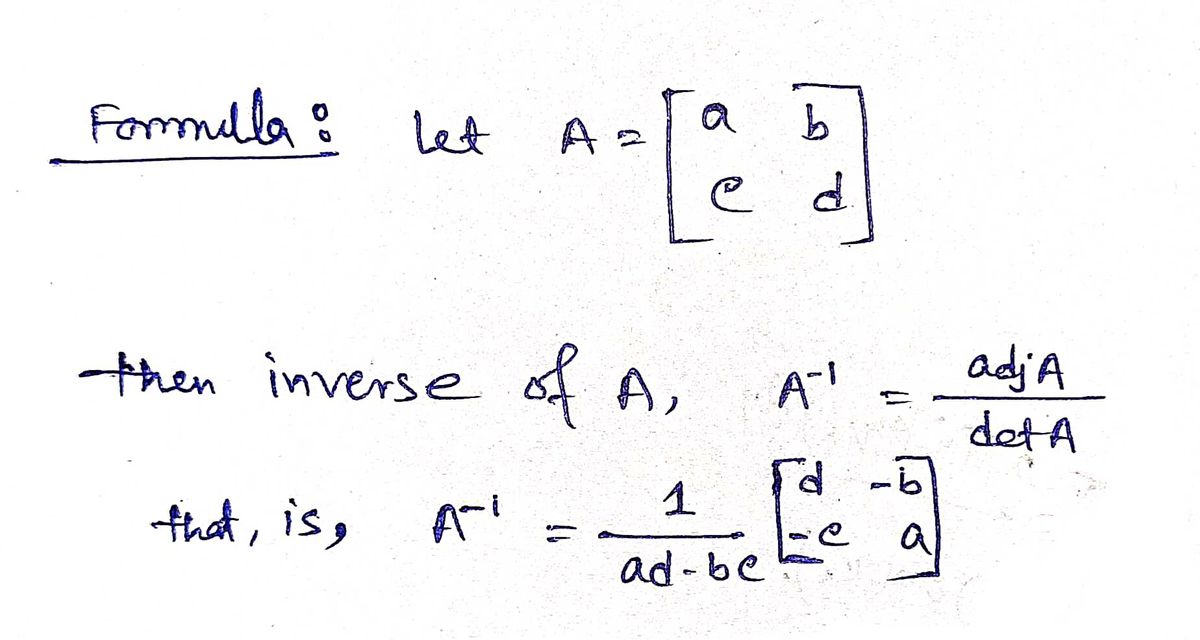 Formulla: Let A = [a b
c d]
then inverse of A, A⁻¹ = adj A / det A
that, is, A⁻¹ = 1 / ad - bc [d -b
-c a]